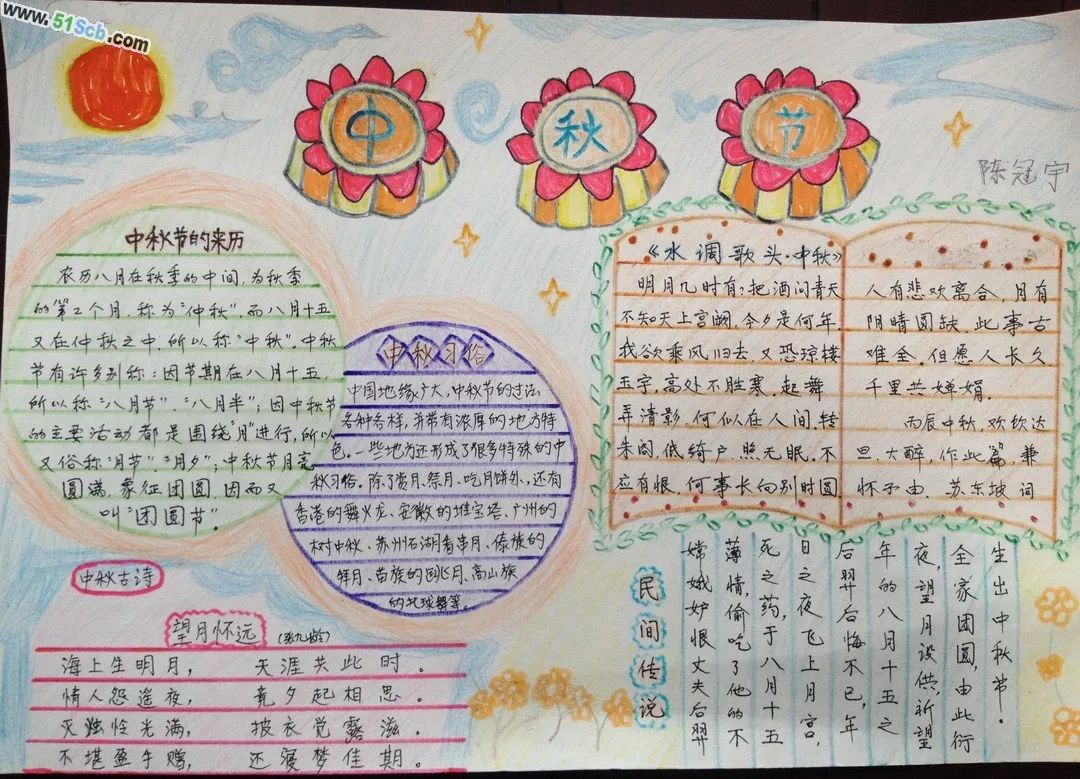 www.51Scb.com
中秋节
陈冠宇
中秋节的来历
农历八月在秋季的中间,为秋季
的第2个月,称为“仲秋”,而八月十五
又在仲秋之中,所以称“中秋”。中秋
节有许多别称:因节期在八月十五
所以称“八月节”、“八月半”;因中秋节
的主要活动都是围绕“月”进行,所以
又俗称“月节”、“月夕”;中秋节月亮
圆满,象征团圆,因而又
叫“团圆节”。
中秋习俗
中国地缘广大,中秋节的过法
各种各样,并带有浓厚的地方特
色。一些地方还形成了很多特殊的中
秋习俗。除了赏月、祭月、吃月饼外,还有
香港的舞火龙、安徽的堆宝塔、广州的
树中秋、苏州石湖看串月、傣族的
拜月、苗族的跳月、高山族
的托球舞等。
《水调歌头·中秋》
明月几时有,把酒问青天
不知天上宫阙,今夕是何年,
我欲乘风归去,又恐琼楼
玉宇,高处不胜寒,起舞
弄清影,何似在人间,转
朱阁,低绮户,照无眠,不
应有恨,何事长向别时圆
人有悲欢离合,月有
阴晴圆缺,此事古
难全,但愿人长久
千里共婵娟。
丙辰中秋,欢饮达
旦,大醉,作此篇,兼
怀子由。苏东坡词
中秋古诗
望月怀远(张九龄)
海上生明月,天涯共此时。
情人怨遥夜,竟夕起相思。
灭烛怜光满,披衣觉露滋。
不堪盈手赠,还寝梦佳期。
民间传说
嫦娥妒恨丈夫后羿
薄情,偷吃了他的不
死之药,于八月十五
日之夜飞上月宫,
后羿后悔不已,年
年的八月十五之
夜,望月设供,祈望
全家团圆,由此衍
生出中秋节。